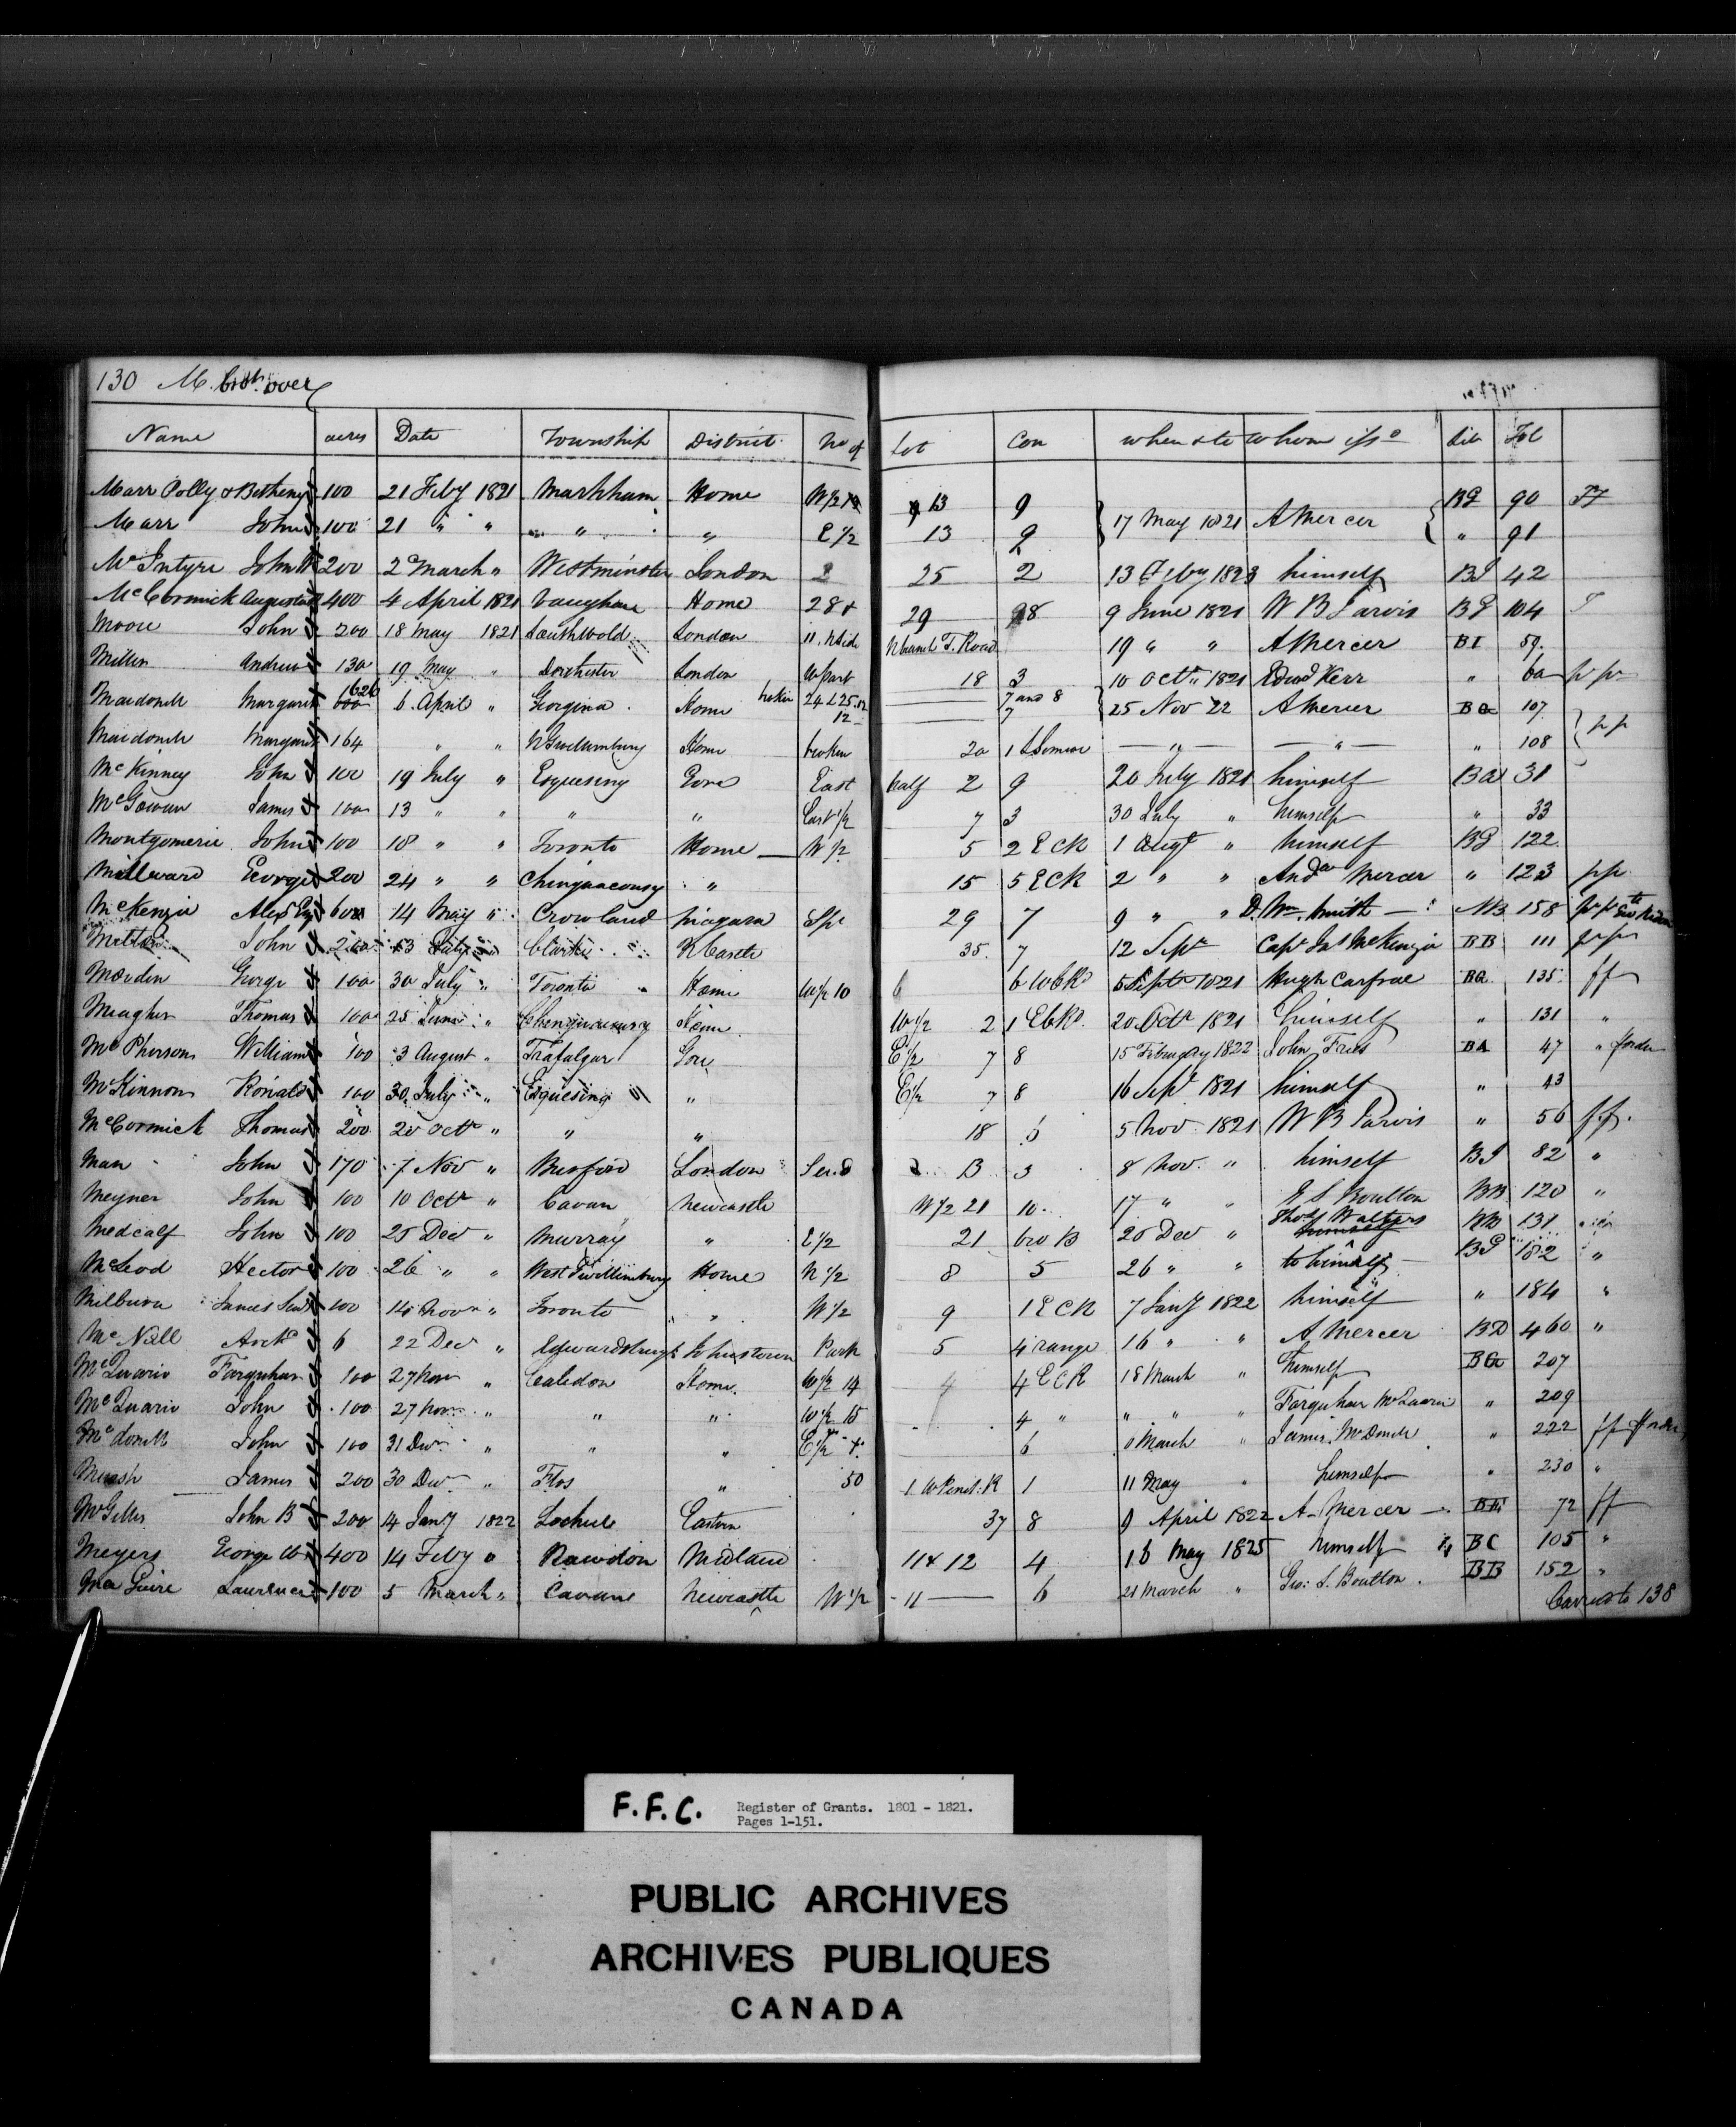 130 M. brot over
Name acres Date Township District No of Lot Con when & to whom issd Lib Fol
Marr Polly & Betheny 100 21 Feby 1821 Markham Home W 1/2 13 9 17 May 1821 A Mercer BG 90
Marr John 100 21 " " " " E 1/2 13 9 " 91
McIntyre John 200 2 March " Westminster London 25 2 13 Feby 1823 himself 42
McCormick Augustus 400 4 April 1821 Vaughan Home 28 & 29 8 9 June 1821 W B Jarvis BG 104
Moore John 200 18 May 1821 Southwold London 11. N Side N branch T. Road 19 " " A Mercer 59
Miller Andrew 130 19 May " Dorchester London W part 18 3 10 Octr 1821 Edwd Kerr " 60 pr pr
Macdonell Margaret 1626 6 April " Georgina Home broken 24 & 25. 12 7 and 8 25 Nov 22 A Mercer BG 107
Macdonell Margaret 164 " " N Gwillimbury Home broken 20 1 L Simcoe " " " 108 pp
McKinney John 100 19 July " Esquesing Gore East half 2 9 20 July 1821 himself Ba 31
McGowan James 100 13 " " " " East 1/2 7 3 30 July " himself " 33
Montgomerie John 100 18 " " Toronto Home W 1/2 5 2 ECR 1 Augt " himself BG 122
Millward George 200 24 " " Chinguacousy " 15 5 ECR 2 " " Andw Mercer " 123 pp
McKenzie Alexr Esq 600 14 May " Crowland Niagara 29 7 9 " " D. Wm. Smith 158
John 200 13 July " Clarke NCastle 35 7 12 Sept Capt Jas McKenzie BB 111 pr pr
Mordin George 100 30 July " Toronto " Home W 1/2 10 6 6 W C Rd 5 Septr 1821 Hugh Carfrae BG 135 ff
Meagher Thomas 100 25 June " Chinguacousy Home W 1/2 2 1 E C Rd 20 Octr 1821 himself " 131 "
McPherson William 100 3 August " Trafalgar Gore E 1/2 7 8 15 February 1822 John Fries BA 47 "
McKinnon Ronald 100 30 July " Esquesing " E 1/2 7 8 16 Sept 1821 himself " 43
McCormick Thomas 200 20 Octr " " " 18 6 5 Nov 1821 W B Jarvis " 56 ff
Man John 170 7 Nov " Burford London B 3 8 Nov. " himself 82 "
Meyner John 100 10 Octr " Cavan Newcastle W 1/2 21 10 17 " " Boulton BB 120 "
Medcalf John 100 25 Dec " Murray " E 1/2 21 bro B 20 Dec " Thos Walters himself BB 131
McLeod Hector 100 26 " " West Gwillimbury Home N 1/2 8 5 26 " " to himself BG 182 "
Milburn James Senr 100 14 Novr " Toronto " W 1/2 9 1 ECR 7 Jany 1822 himself " 184 "
McNiell Archd 6 22 Dec " Edwardsburgh Johnstown Park 5 4 range 16 " " A Mercer BD 460 "
McQuarie Farquhar 100 27 Nov " Caledon Home W 1/2 14 4 ECR 18 March " himself BG 207
McQuarie John 100 27 Nov " " " W 1/2 15 4 " " " " Farquhar McQuarie " 209
McDonell John 100 31 Dec " " " E 1/2 4 6 March " James McDonell " 222
James 200 30 Dec " Flos " 50 1 W Penet. R 1 11 May " himself " 230 "
McGillis John B 200 14 Jany 1822 Lochiel Eastern 37 8 9 April 1822 A Mercer 72 ff
Meyers George W. 400 14 Feby " Rawdon Midland 11 & 12 4 16 May 1825 himself BC 105 "
MaGuire Laurence 100 5 March " Cavan Newcastle W 1/2 11 6 21 March " Geo: S. Boulton BB 152 "
Carried to 138
F.F.C. Register of Grants. 1801 - 1821.
Pages 1-151.
PUBLIC ARCHIVES
ARCHIVES PUBLIQUES
CANADA